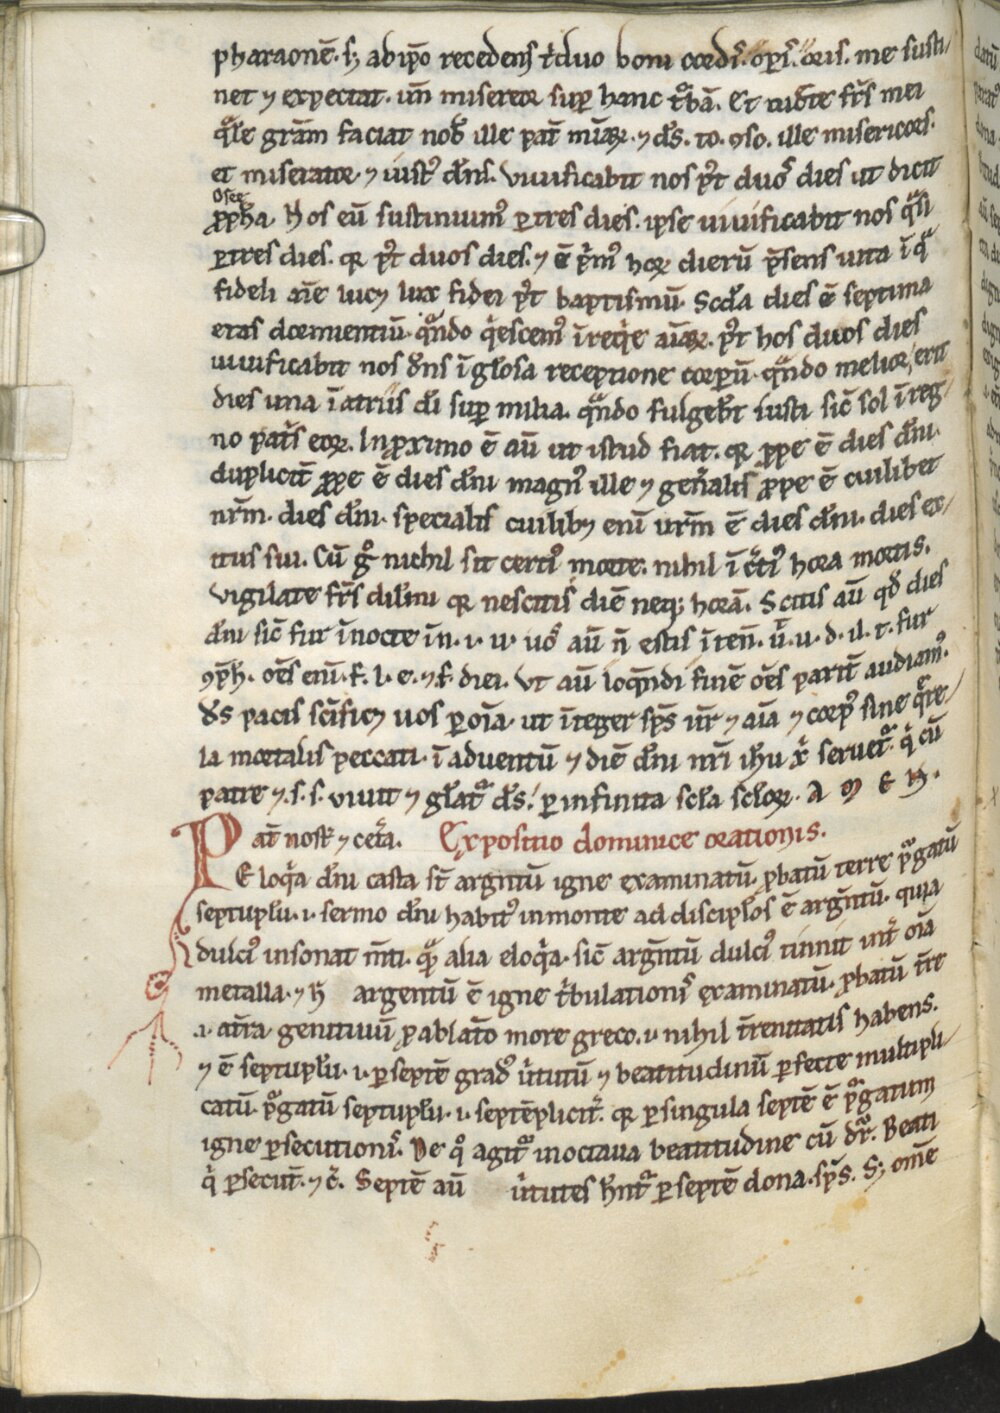 pharaonē. sꝫ ab ip̄o recedens t̉duo boni cordis̉. oꝑis̉. oris. me susti/
net ⁊ expectat. un̄ misereor suꝑ hanc tͦbā. Et uid̄te fr̄s mei
qͣle grām faciat nob̉ ille pat̄ mīaꝝ. ⁊ d̄s. to. ꝯso. ille misericors.
et miserator. ⁊ iustꝰ dn̄s. Viuificabit nos pꝰt duos̉ dies ut dicit
Osee
ꝓph̄a Hos eū sustinuimꝰ ꝑ tres dies. ipse uiuificabit nos qͣsi
ꝑ tres dies. qꝛ pꝰt duos dies. ⁊ ē pͥmꝰ hoꝝ dierū p̄sens uita ī qͣ
fideli aīe lucꝫ lux fidei pꝰt baptismū. Scd̄a dies ē septima
etas dormientiū. qͣndo qͥescemꝰ ī reqͥe aīaꝝ. pꝰt hos duos dies
uiuificabit nos dn̄s ī gl̄osa receptione corꝑū. qͣndo melior, erit
dies una ī atriis dn̄i suꝑ milia. qͣndo fulgeb̄t iusti sic̄ sol ī reg/
no pat̄s eoꝝ. In ꝓximo ē aū ut istud fiat. qꝛ ꝓpe ē dies dn̄i.
duplicit̄ ꝓpe ē dies dn̄i magnꝰ ille ⁊ gen̄alis ꝓpe ē cuilibet
nr̄m. dies dn̄i. specialis cuilibꝫ enī ur̄m ē dies dn̄i. dies ex/
itus sui. Cū gͦ nichil sit certiꝰ morte. nihil ī c̄tiꝰ hora mortis.
vigilate fr̄s dil̄mi qꝛ nescitis diē neqꝫ horā. Scitis aū qđ dies
dn̄i sic̄ fur ī nocte īn. i. u. uos̉ aū n̄ estis ī ten̄. u̇. u. d. il. t. fur
ꝯp̄h. oēs enī. f. l. e. ⁊ f. diei. Vt aū loq̄ndi finē oēs parit̄ audiamꝰ.
ds̄ pacis sc̄ificꝫ uos ꝑ oīa. ut īteger sp̄s ur̄ ⁊ aīa ⁊ corpꝰ sine qͣre/
la mortalis peccati. ī aduentū ⁊ diē dn̄i nr̄i ihu xͥ seruet̉. qͥ cū
patre ⁊. s. s. viuit ⁊ gl̄at̉ d̄s. ꝑ infinita scl̄a scl̄oꝝ. A M E N.
Pat̄ nost̉ ⁊ cet̄a. Expositio dominice orationis.
Eloqͥa dn̄i casta st̄ argn̄tū igne examinatū. ꝓbatū terre pͥgatū
septuplū. i. sermo dn̄i habitꝰ in monte ad discipl̄os ē argn̄tū. quia
dulciꝰ insonat m̄ti. qͣꝫ alia eloqͥa. sic̄ argn̄tū dulciꝰ tinnit int̄ oīa
metalla. ⁊ h̄ argentū ē igne t̉bulationis̉ examinatū. ꝓbatū t̄re
.i. at̄ra. genitiuū ꝓ ablat̄o more greco. i. nihil t̄renitatis habens.
⁊ ē septuplū. i. ꝑ septē gradꝰ u̇tutū ⁊ beatitudinū ꝑfecte multipli/
catū. pͥgatū septuplū. i. septēplicit̉. qꝛ ꝑ singula septē ē pͥgatum
igne ꝑsecutionis̉. De qͦ agit̉ in octaua beatitudine cū dr̄. Beati
qͥ ꝑsecut̄. ⁊ c̉. Septē aū u̇tutes hn̄t̉ ꝑ septē dona. sp̄s. Sꝫ omē